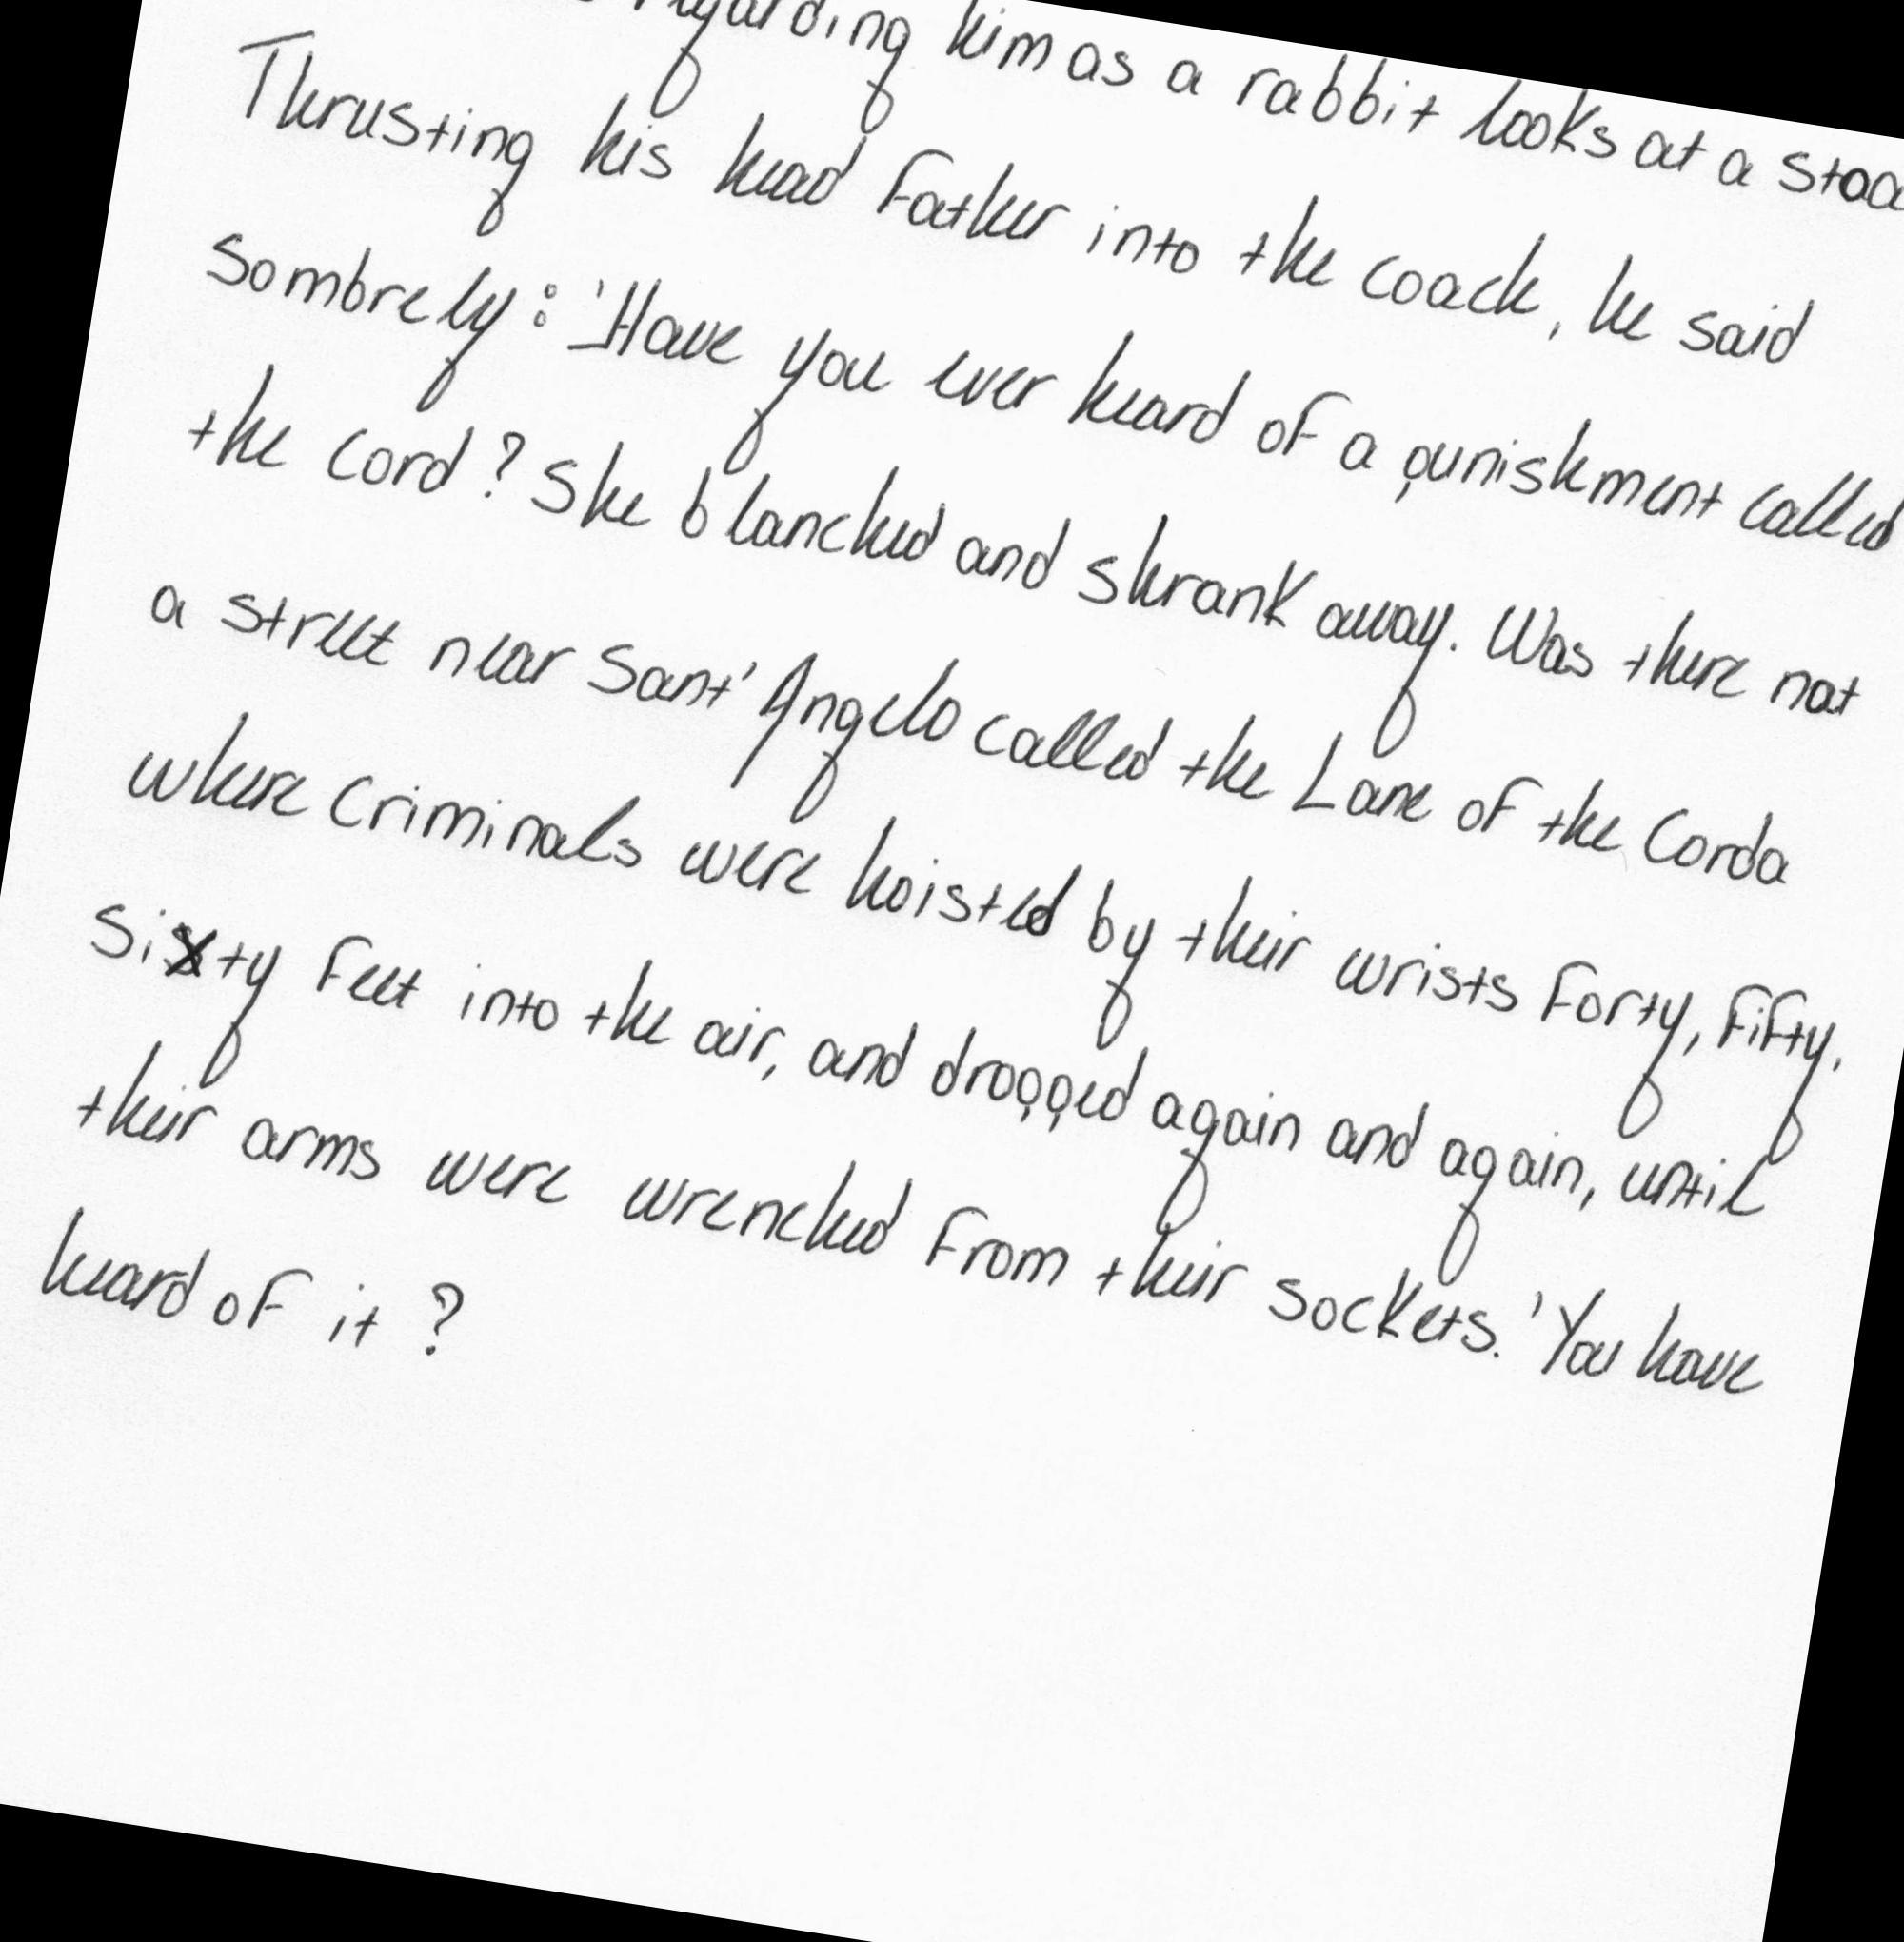 regarding him as a rabbit looks at a
Thrusting his head Father into the coach, he said
sombrely: 'Have you ever heard of a punishment called
the cord? She blanched and shrank away. Was there not
a street near Sant' Angelo called the Lane of the Corda
where criminals were hoisted by their wrists forty, fifty,
sixty feet into the air, and dropped again and again, until
their arms were wrenched from their sockets. 'You have
heard of it?